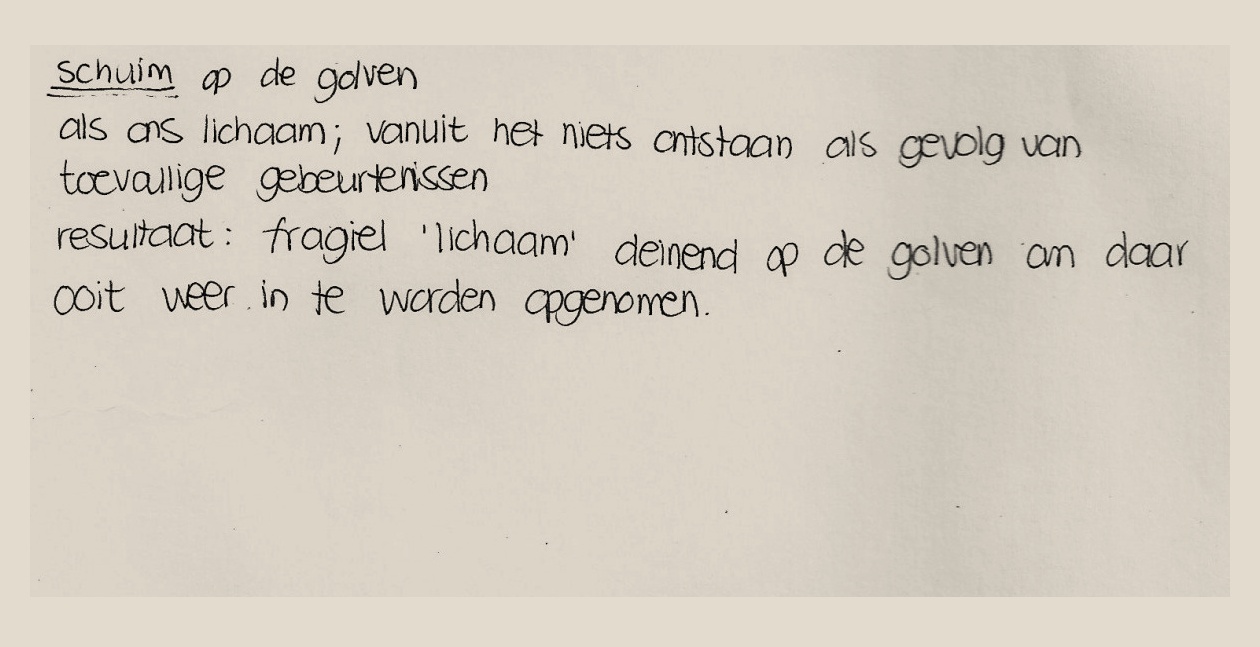 schuim op de golven
als ons lichaam; vanuit het niets ontstaan als gevolg van
toevallige gebeurtenissen
resultaat: fragiel 'lichaam' deinend op de golven om daar
ooit weer in te worden opgenomen.